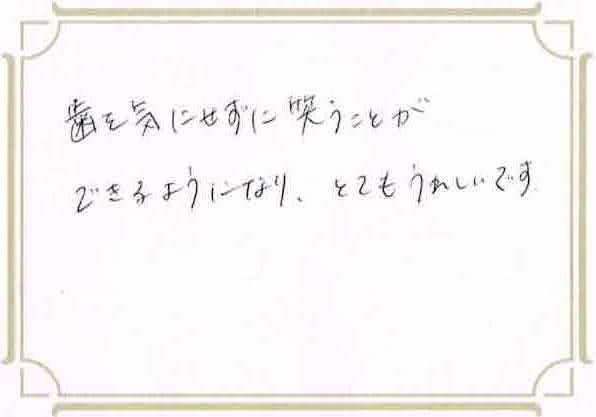 歯を気にせずに笑うことが
できるようになり、とてもうれしいです